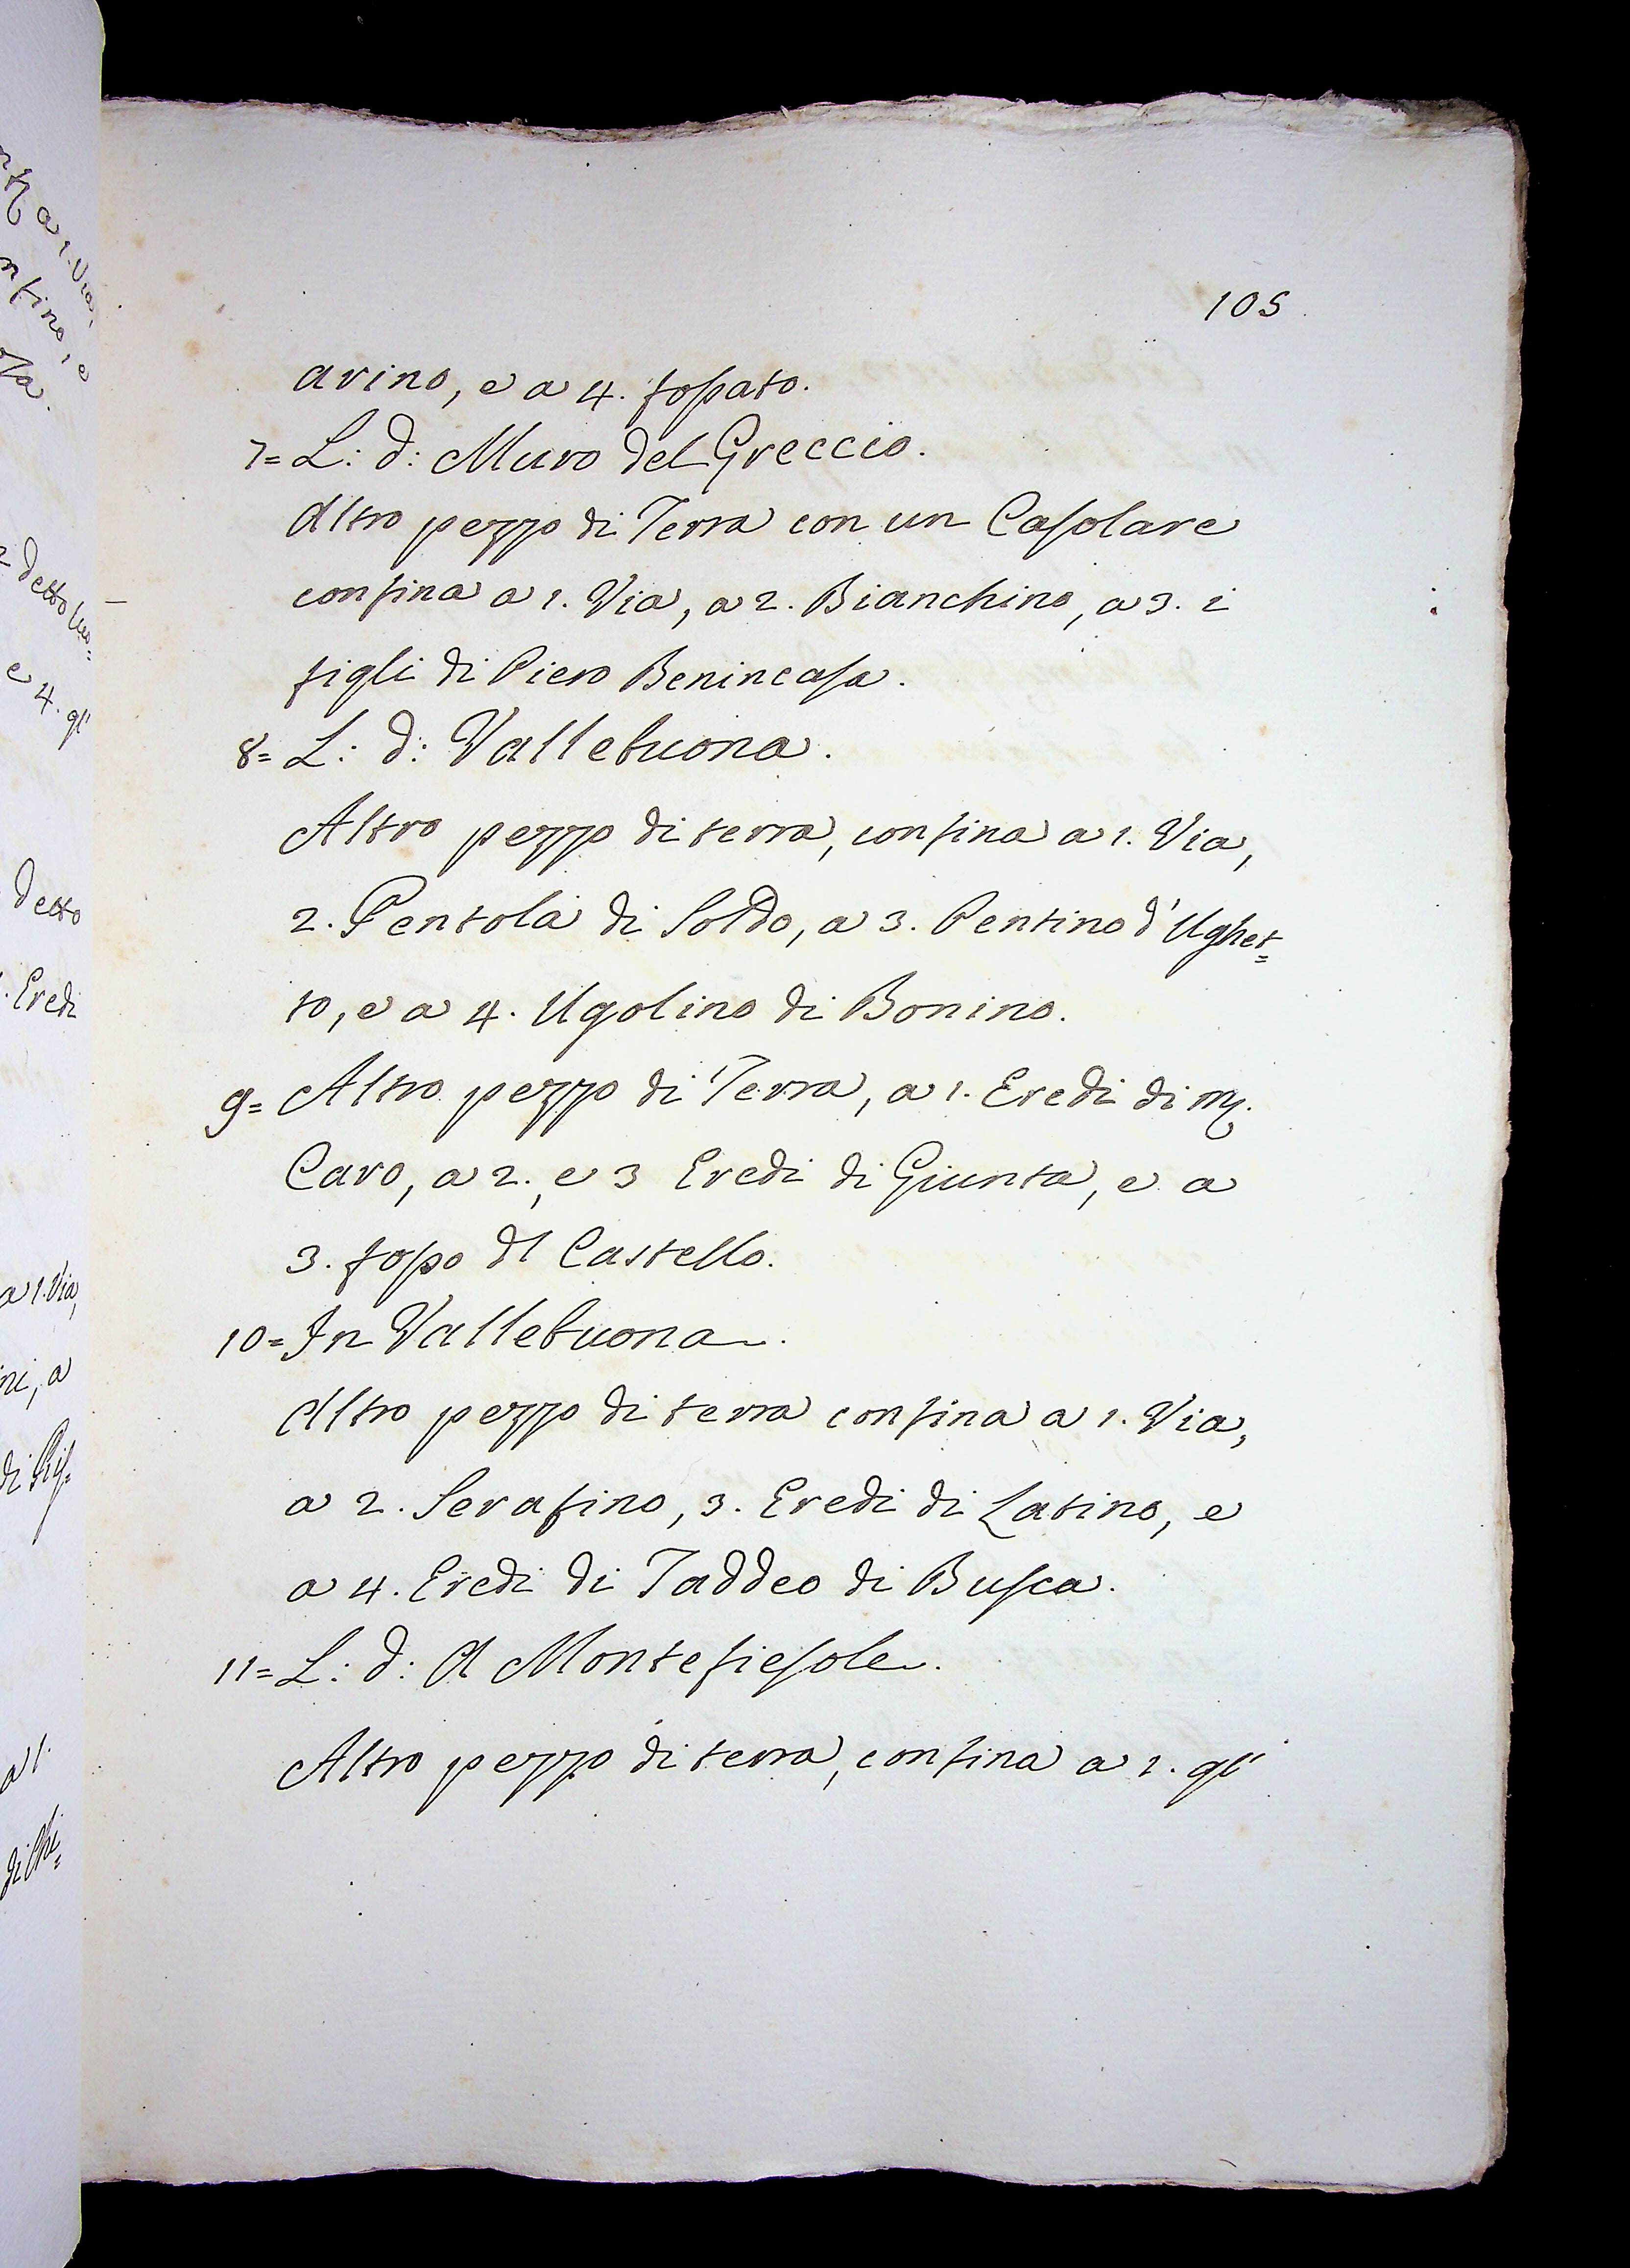 105
arino, e a 4. fossato.
7= L: d: Muro del Greccio.
Altro pezzo di Terra con un Casolare
confina a 1. Via, a 2. Bianchino, a 3. i
figli di Piero Benincasa.
8= L: d: Vallebuona.
Altro pezzo di terra, confina a 1. Via,
2. Pentola di Soldo, a 3. Pentino d'Ughet=
to, e a 4. Ugolino di Bonino.
9= Altro pezzo di Terra, a 1. Eredi di M.
Caro, a 2., e 3 Eredi di Giunta, e a
3. fosso dl Castello.
10= In Vallebuona.
Altro pezzo di terra confina a 1. Via,
a 2. Serafino, 3. Eredi di Latino, e
a 4. Eredi di Taddeo di Busca.
11= L: d: A Montefiesole.
Altro pezzo di terra, confina a 1. gl'